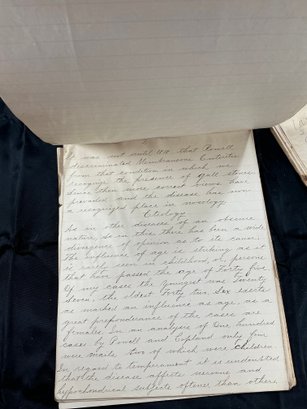 It was not until 18 that Powell
discriminated Membranous Enteritis
from that condition in which we
recognize the presence of gall stones
Since then more correct views have
prevailed and the disease has now
a recognized place in nosology.
Etiology
As in other diseases of an obscure
nature so in this there has been a wide
divergence of opinion as to its cause.
The influence of age is striking as it
is rarely seen in childhood, or, persons
that have passed the age of forty five.
Of my cases the youngest was twenty
seven, the oldest forty two. Sex exerts
as marked an influence as age, as a
great preponderance of the cases are
females. In an analysis of One hundred
cases by Powell and Copland only four
were males, two of which were Children.
In regard to temperament it is understood
that the disease affects nervous and
hypochondriacal subjects oftener than others.